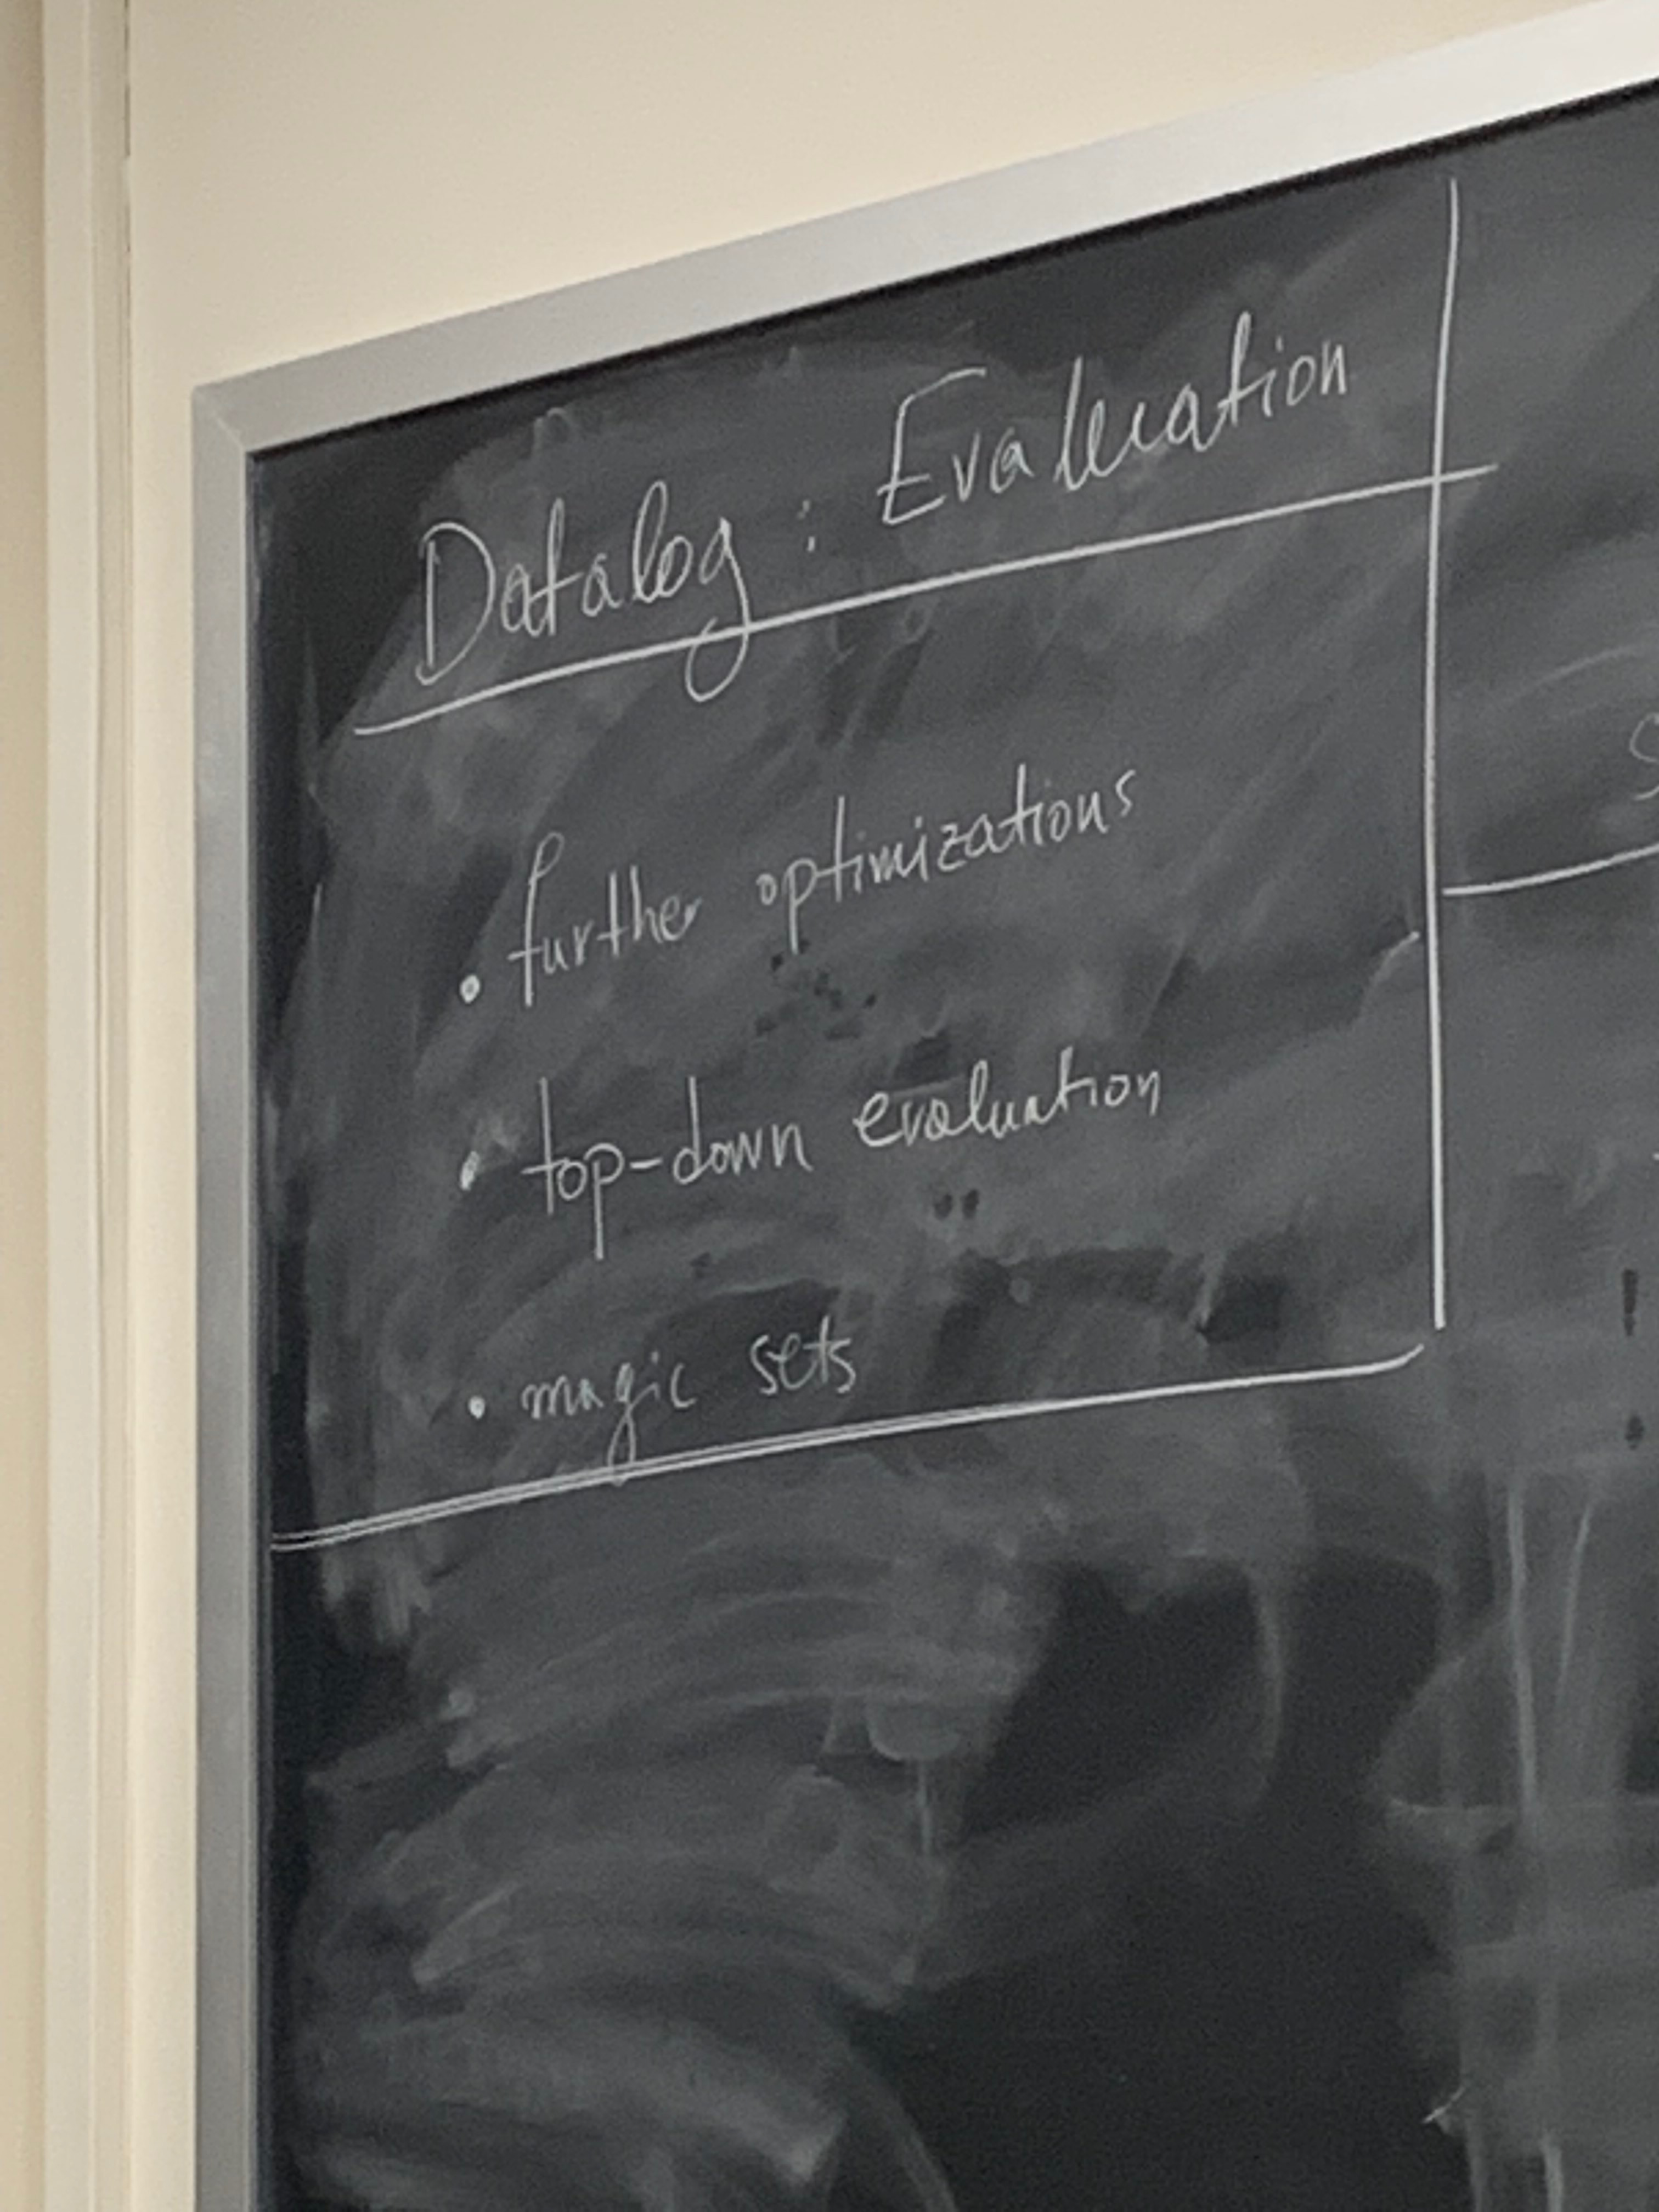 Datalog : Evaluation
• further optimizations
• top-down evaluation
• magic sets